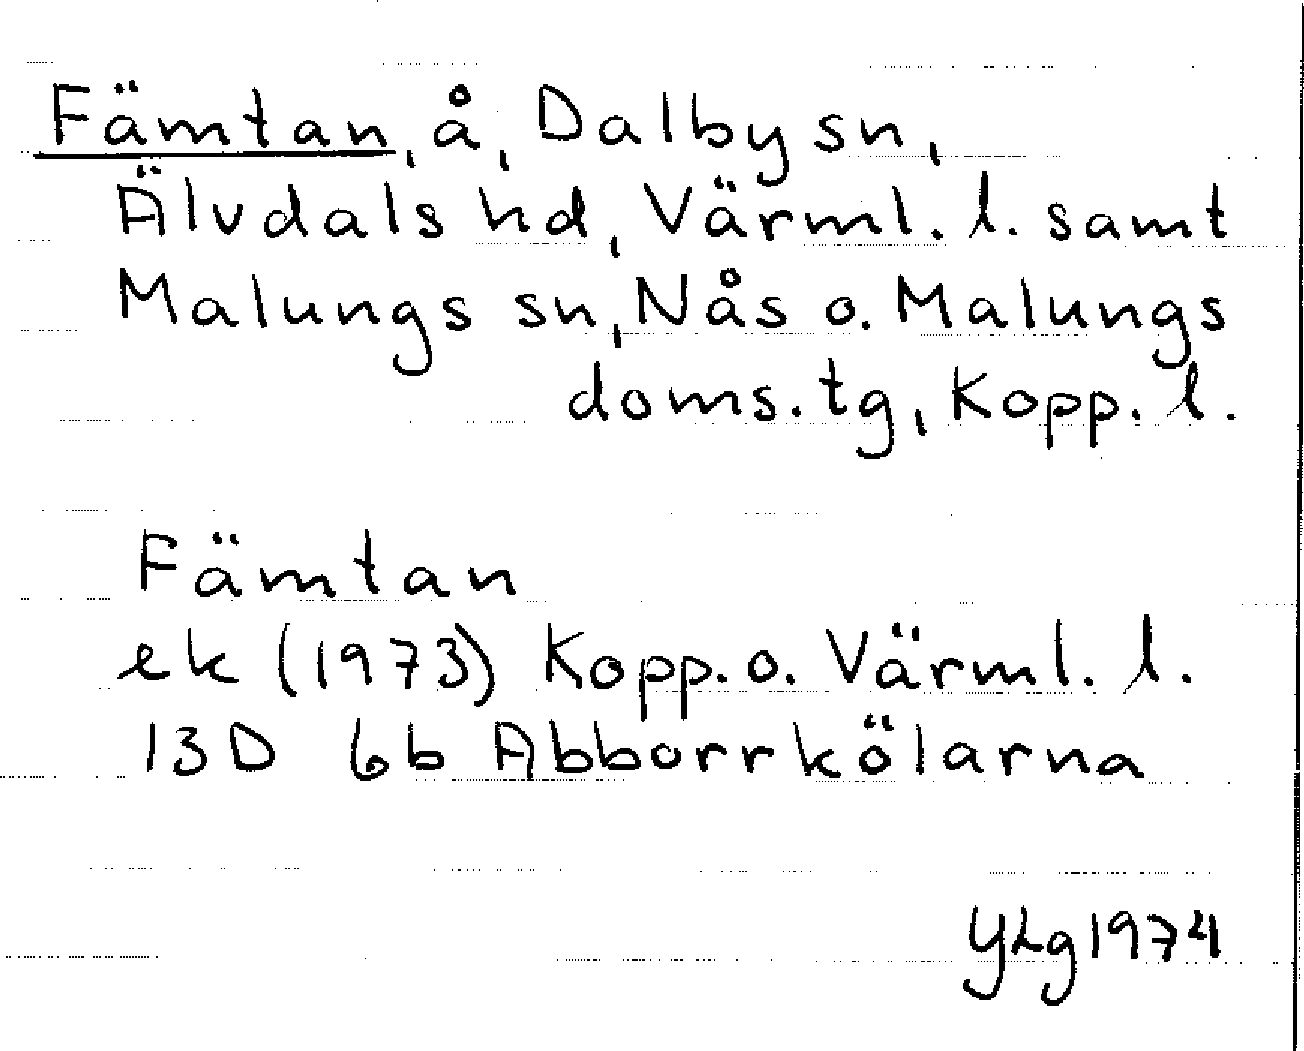 Fämtan, å, Dalby sn,
Älvdals hd, Värml. l. samt
Malungs sn, Nås o. Malungs
doms.tg, Kopp. l.
Fämtan
ek (1973) Kopp. o. Värml. l.
13D 6b Abborrkölarna
YLg 1974